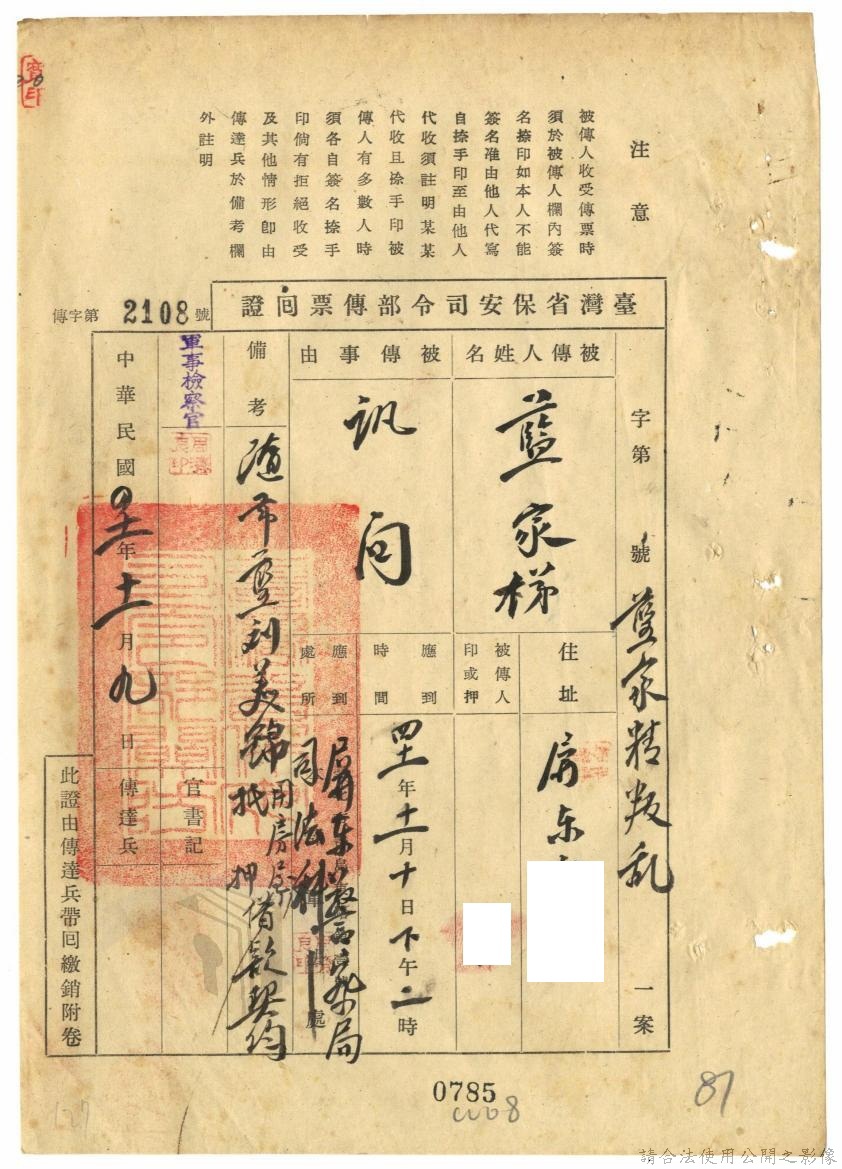 注意
被傳人收受傳票時
須於被傳人欄內簽
名捺印如本人不能
簽名准由他人代寫
自捺手印至由他人
代收須註明某某
代收且捺手印被
傳人有多數人時
須各自簽名捺手
印倘有拒絕收受
及其他情形卽由
傳達兵於備考欄
外註明
臺灣省保安司令部傳票囘證
傳字第2108號
字第 號 藍家精叛乱 一案
被傳人姓名
藍家梯
住址
屏东
被傳人
印或押
被傳事由
訊问
應到
時間
四十一年十一月十日下午二時
應到
處所
屏东警察局
司法科
處
備考
随带蓝刘美錦用房屋
抵押借款契约
軍事檢察官
官書記
中華民國四十一年十一月九日
傳達兵
此證由傳達兵帶囘繳銷附卷
0785
87
127
請合法使用公開之影像